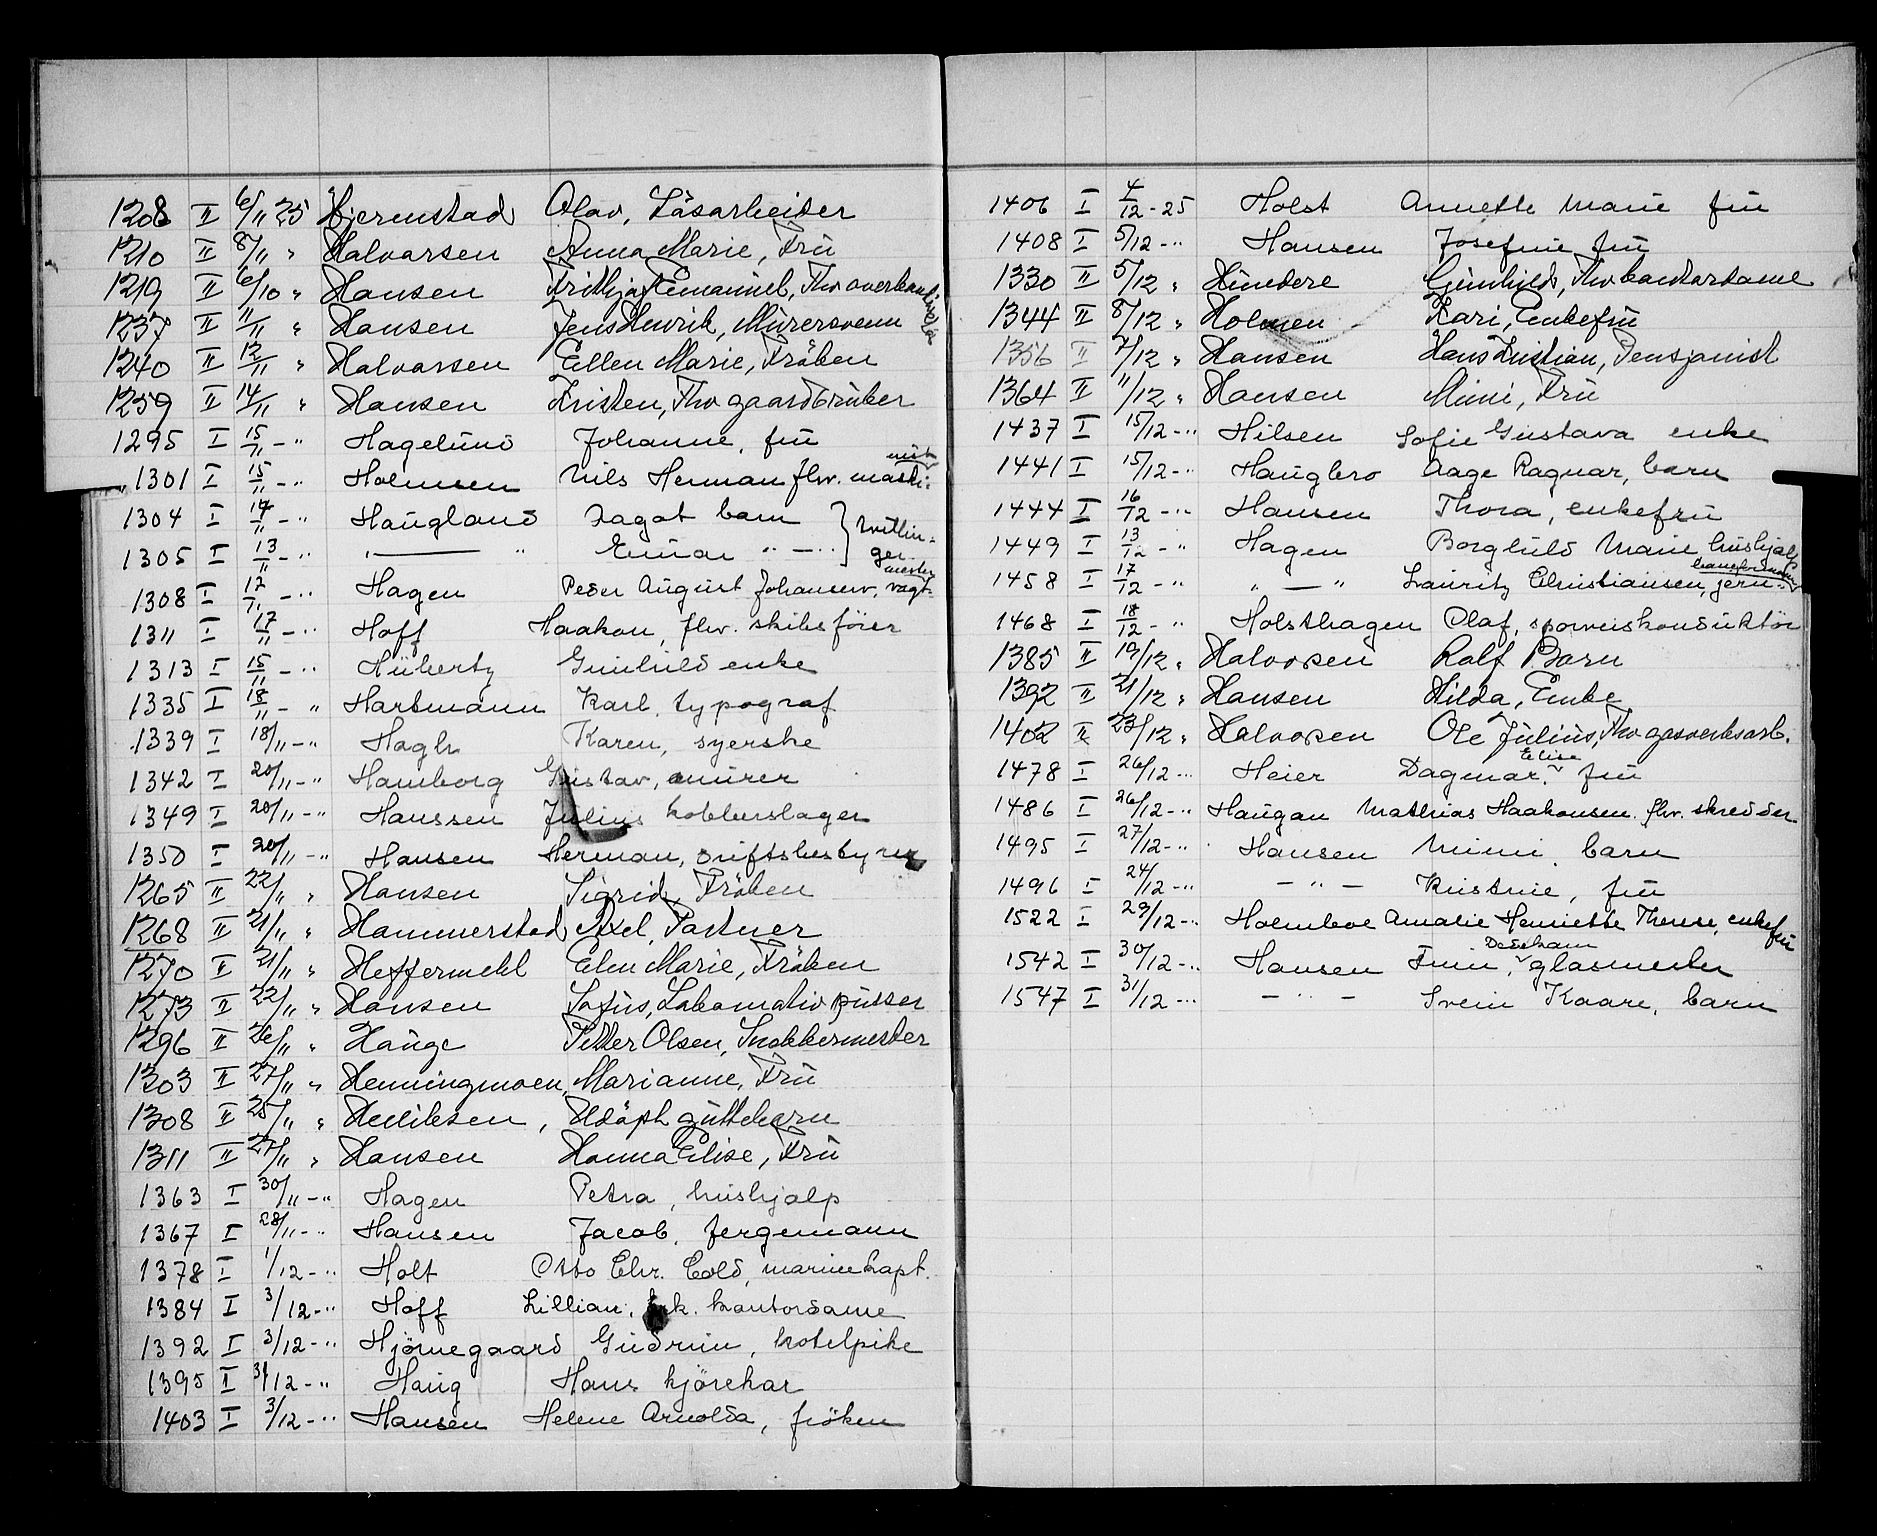 1208 II 6/11 25 Hjerenstad Olav, Låsarbeider
1210 II 8/11 " Halvorsen Anna Marie, Fru
1219 II 6/10 " Hansen Fritjof Emanuel, Fhv overkonstabel
1237 II 11/11 " Hansen Jens Henrik, Murersvenn
1240 II 12/11 " Halvorsen Ellen Marie, Fröken
1259 II 14/11 " Hansen Kristen, Fhv gaardbruker
1295 I 15/11 - " Hagelund Johanne, fru
1301 I 15/11 - " Holmsen Nils Herman fhv. maski-
nist
1304 I 14/11 - " Haugland Dagot barn } tvillin-
1305 I 13/11 - " " — " Einar " - " } ger
1308 I 12/11 - " Hagen Peder August Johansen, vagt-
mester
1311 I 17/11 - " Hoff Haakon, fhv. skibsförer
1313 I 15/11 - " Hüberty Gunhild enke
1335 I 18/11 - " Hartmann Karl, typograf
1339 I 18/11 - " Hagh Karen, syerske
1342 I 20/11 - " Hamborg Gustav, murer
1349 I 20/11 - " Hanssen Julius kobberslager
1350 I 20/11 - " Hansen Herman, driftsbestyrer
1265 II 22/11 " Hansen Sigrid, Fröken
1268 II 21/11 " Hammerstad Axel, Partner
1270 II 21/11 " Heffermehl Elen Marie, Fröken
1273 II 22/11 " Hansen Sofus, Lokomotivpusser
1296 II 26/11 " Hauge Petter Olsen, Snekkermester
1303 II 27/11 " Henningmoen, Marianne, Fru
1308 II 25/11 " Henriksen, Udöpt guttebarn
1311 II 27/11 " Hansen Hanna Elise, Fru
1363 I 30/11 - " Hagen Petra, hushjelp
1367 I 28/11 - " Hansen Jacob, fergemann
1378 I 1/12 - " Holt Otto Chr. Cold, marinekapt.
1384 I 3/12 - " Hoff Lillian, frk. kontordame
1392 I 3/12 - " Hjörnegaard Gudrun, hotelpike
1395 I 31/12 - " Haug Hans kjörekar
1403 I 3/12 - " Hansen Helene Arnolda, fröken
1406 I 4/12 - 25 Holst Annette Marie fru
1408 I 5/12 - " Hansen Josefine fru
1330 II 5/12 " Hundere Gunhild, Fhv kontordame
1344 II 8/12 " Holmen Kari, Enkefru
1356 II 7/12 " Hansen Hans Kristian, Pensjonist
1364 II 11/12 " Hansen Mimi, Fru
1437 I 15/12 - " Hilsen Sofie Gustava enke
1441 I 15/12 - " Haugbro Aage Ragnar, barn
1444 I 16/12 - " Hansen Thora, enkefru
1449 I 13/12 - " Hagen Borghild Marie, hushjelp
1458 I 17/12 - " " — " Lauritz Christiansen, jern-
1468 I 18/12 - " Holsthagen Olaf, sporveiskonduktör
1385 II 19/12 " Halvorsen Rolf Barn
1392 II 21/12 " Hansen Hilda, Enke
1402 II 23/12 " Halvorsen Ole Julius, Fhv gasverksarb.
1478 I 26/12 - " Heier Dagmar Elise, fru
1486 I 26/12 - " Haugan Mathias Haakonsen, fhv. skredder
1495 I 27/12 - " Hansen Mimi, barn
1496 I 24/12 - " - " - Kristine, fru
1522 I 29/12 - " Holmboe Amalie Henriette Therese, enkefru
1542 I 30/12 - " Hansen Finn, glasmester
1547 I 31/12 - " - " - Svein Kaare, barn